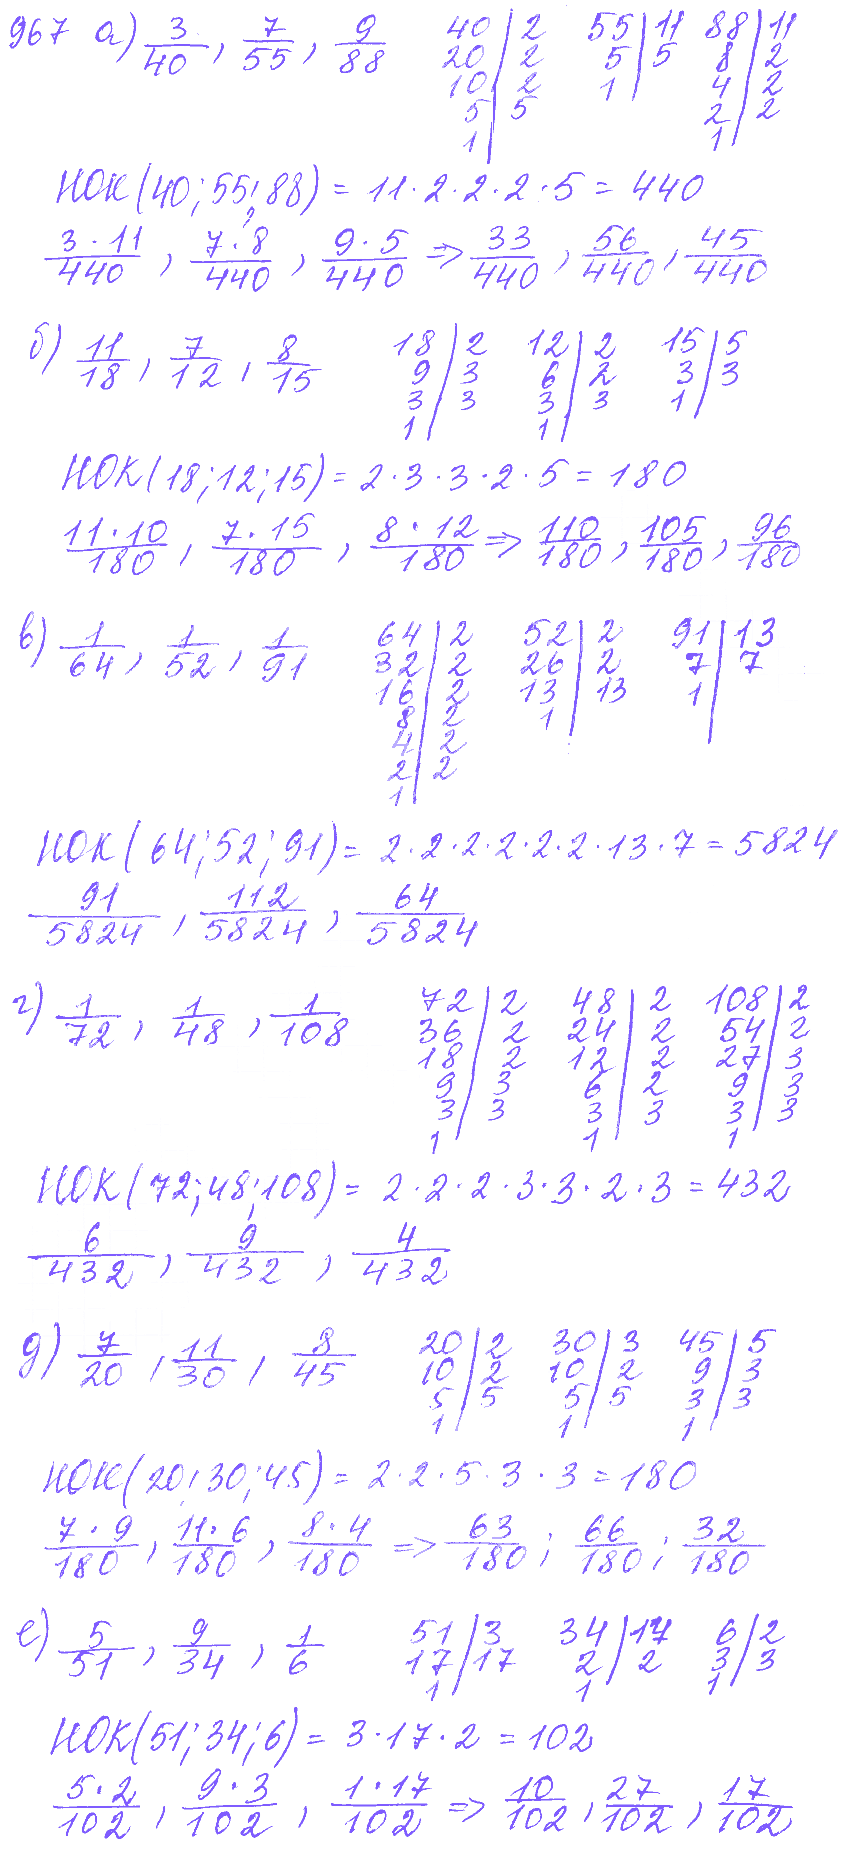 967 а) 3/40, 7/55, 9/88 40|2 55|11 88|11
20|2 5|5 8|2
10|2 1| 4|2
5|5 2|2
1| 1|
НОК(40;55;88) = 11·2·2·2·5 = 440
3·11/440, 7·8/440, 9·5/440 => 33/440, 56/440, 45/440
б) 11/18, 7/12, 8/15 18|2 12|2 15|5
9|3 6|2 3|3
3|3 3|3 1|
1| 1|
НОК(18;12;15) = 2·3·3·2·5 = 180
11·10/180, 7·15/180, 8·12/180 => 110/180, 105/180, 96/180
в) 1/64, 1/52, 1/91 64|2 52|2 91|13
32|2 26|2 7|7
16|2 13|13 1|
8|2 1|
4|2
2|2
1|
НОК(64;52;91) = 2·2·2·2·2·2·13·7 = 5824
91/5824, 112/5824, 64/5824
г) 1/72, 1/48, 1/108 72|2 48|2 108|2
36|2 24|2 54|2
18|2 12|2 27|3
9|3 6|2 9|3
3|3 3|3 3|3
1| 1| 1|
НОК(72;48;108) = 2·2·2·3·3·2·3 = 432
6/432, 9/432, 4/432
д) 7/20, 11/30, 8/45 20|2 30|3 45|5
10|2 10|2 9|3
5|5 5|5 3|3
1| 1| 1|
НОК(20;30;45) = 2·2·5·3·3 = 180
7·9/180, 11·6/180, 8·4/180 => 63/180; 66/180; 32/180
е) 5/51, 9/34, 1/6 51|3 34|17 6|2
17|17 2|2 3|3
1| 1| 1|
НОК(51;34;6) = 3·17·2 = 102
5·2/102, 9·3/102, 1·17/102 => 10/102, 27/102, 17/102